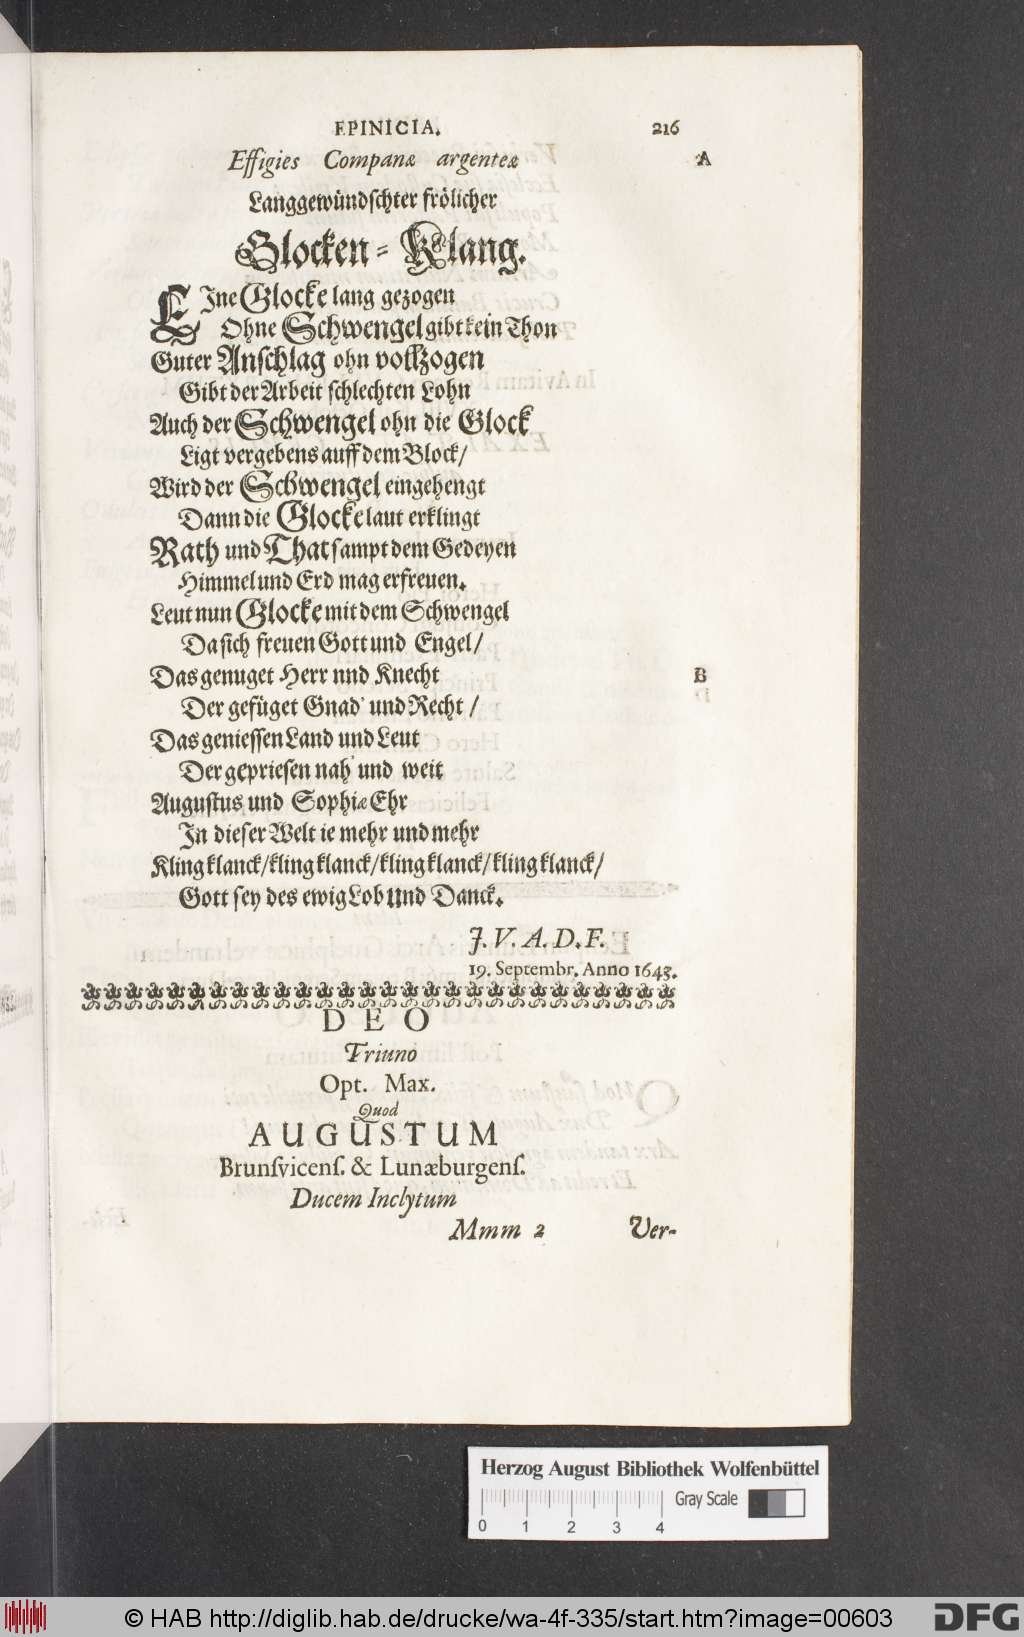 EPINICIA. 216
Effigies Companæ argenteæ A
Langgewündschter frölicher
Glocken-Klang.
EIne Glocke lang gezogen
Ohne Schwengel gibt kein Thon
Guter Anschlag ohn vollzogen
Gibt der Arbeit schlechten Lohn
Auch der Schwengel ohn die Glock
Ligt vergebens auff dem Block/
Wird der Schwengel eingehengt
Dann die Glocke laut erklingt
Rath und That sampt dem Gedeyen
Himmel und Erd mag erfreuen.
Leut nun Glocke mit dem Schwengel
Da sich freuen Gott und Engel/
Das genuget Herr nnd Knecht B
Der gefüget Gnad' und Recht/
Das geniessen Land und Leut
Der gepriesen nah' und weit
Augustus und Sophiæ Ehr
In dieser Welt ie mehr und mehr
Kling klanck/kling klanck/kling klanck/kling klanck/
Gott sey des ewig Lob und Danck.
J. V. A. D. F.
19. Septembr. Anno 1643.
DEO
Triuno
Opt. Max.
Quod
AUGUSTUM
Brunſvicenſ. & Lunæburgenſ.
Ducem Inclytum
Mmm 2 Ver-
Herzog August Bibliothek Wolfenbüttel
Gray Scale
0 1 2 3 4
© HAB http://diglib.hab.de/drucke/wa-4f-335/start.htm?image=00603
DFG